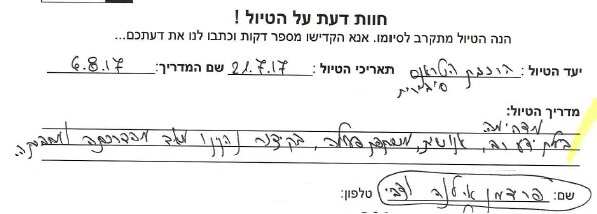 חוות דעת על הטיול !
הנה הטיול מתקרב לסיומו. אנא הקדישו מספר דקות וכתבו לנו את דעתכם...
יעד הטיול : הרכבת הטראנס סיבירית תאריכי הטיול : 21.7.17 שם המדריך: 6.8.17
מדריך הטיול:
מדהימה
בעלת ידע רב, אנושית, משתפת פעולה, בקיצור נהננו מאד מהדרכתה
שם: פרדמן אילנה טלפון: